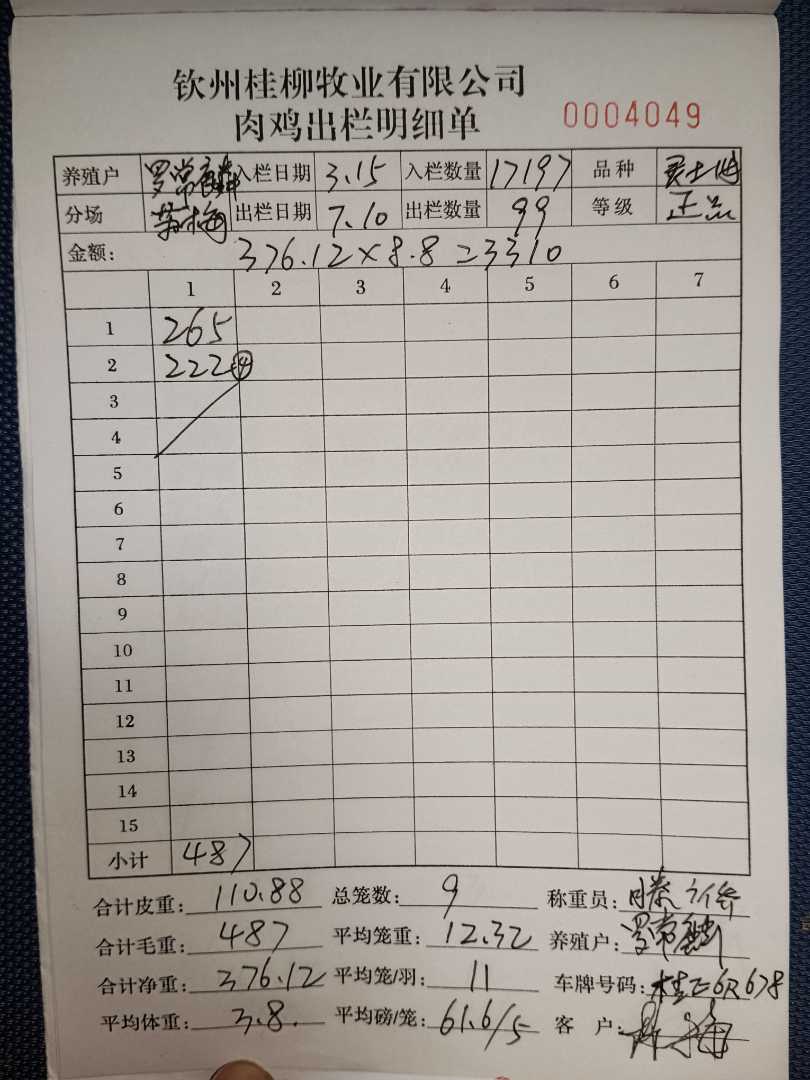 钦州桂柳牧业有限公司
肉鸡出栏明细单 0004049
养殖户 罗常麟 入栏日期 3.15 入栏数量 17197 品种
分场 出栏日期 7.10 出栏数量 99 等级 正品
金额: 376.12×8.8=3310
1 2 3 4 5 6 7
1 265
2 222
3
4
5
6
7
8
9
10
11
12
13
14
15
小计 487
合计皮重: 110.88 总笼数: 9 称重员:
合计毛重: 487 平均笼重: 12.32 养殖户: 罗常麟
合计净重: 376.12 平均笼/羽: 11 车牌号码:
平均体重: 3.8. 平均磅/笼: 61.6/5 客 户: